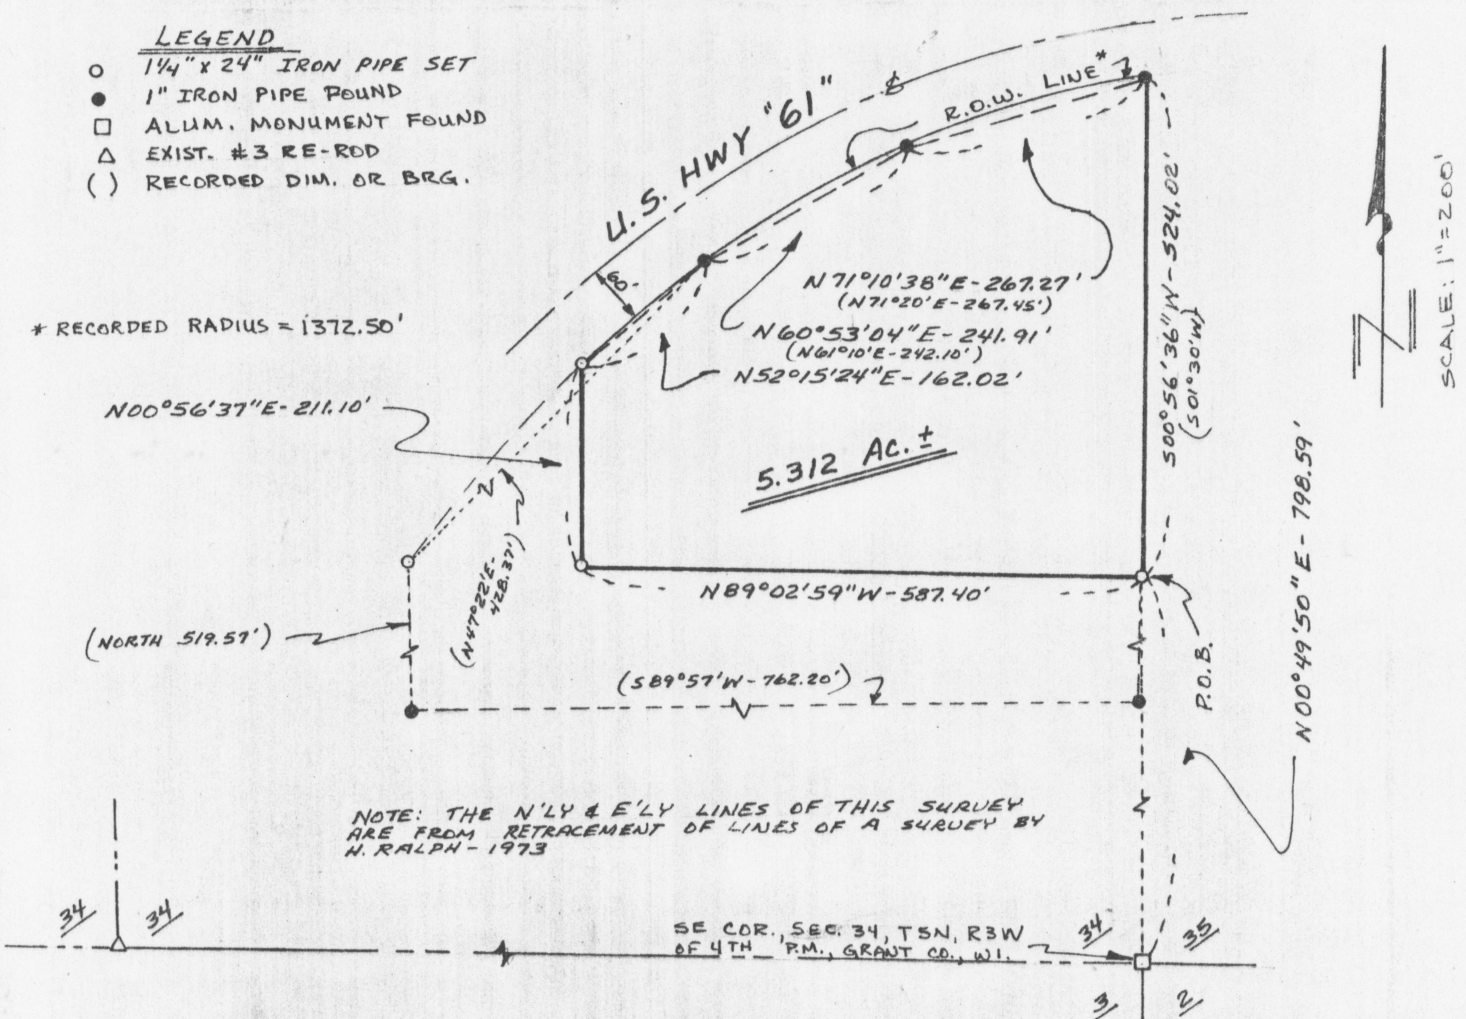 LEGEND
○ 1¼" X 24" IRON PIPE SET
● 1" IRON PIPE FOUND
□ ALUM. MONUMENT FOUND
△ EXIST. #3 RE-ROD
( ) RECORDED DIM. OR BRG.
U.S. HWY "61"
R.O.W. LINE*
60'
* RECORDED RADIUS = 1372.50'
N71°10'38"E-267.27'
(N71°20'E-267.45')
N60°53'04"E-241.91'
(N61°10'E-242.10')
N52°15'24"E-162.02'
N00°56'37"E-211.10'
S00°56'36"W-524.02'
(S01°30'W)
SCALE: 1"=200'
5.312 AC. ±
N89°02'59"W-587.40'
(N47°22'E-
428.37')
(NORTH 519.57')
(S89°57'W-762.20')
P.O.B.
N00°49'50"E-798.59'
NOTE: THE N'LY & E'LY LINES OF THIS SURVEY
ARE FROM RETRACEMENT OF LINES OF A SURVEY BY
H. RALPH - 1973
34 34
SE COR., SEC. 34, T5N, R3W
OF 4TH P.M., GRANT CO., WI.
34 35
3 2